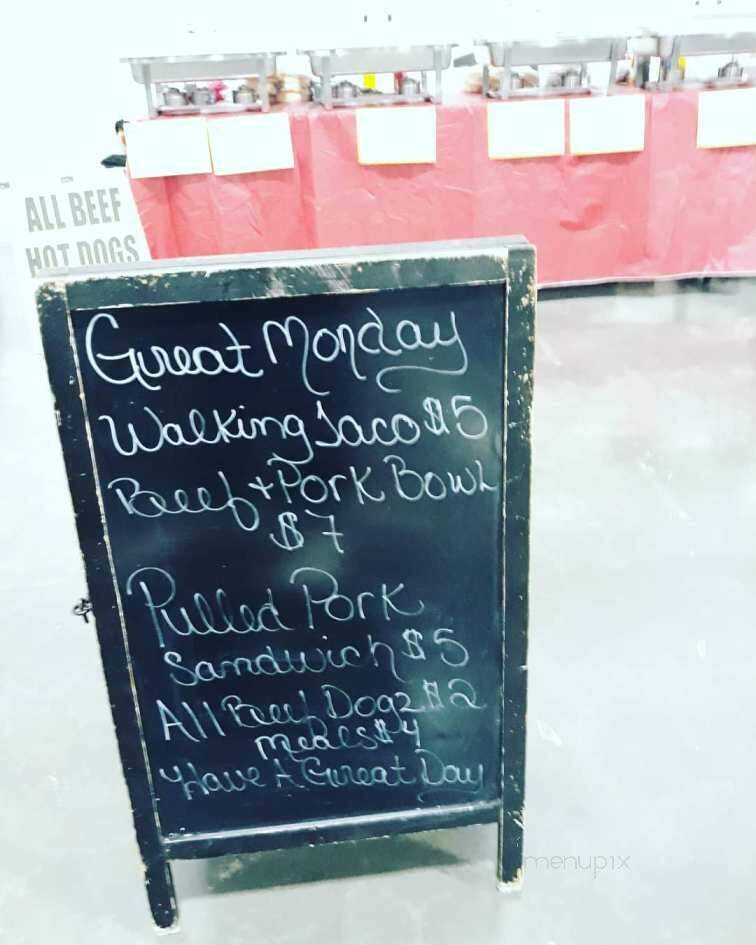 ALL BEEF
HOT DOGS
Great Monday
Walking Taco $5
Beef + Pork Bowl
$7
Pulled Pork
Sandwich $5
All Beef Dogz $2
meals $4
Have A Great Day
menupix